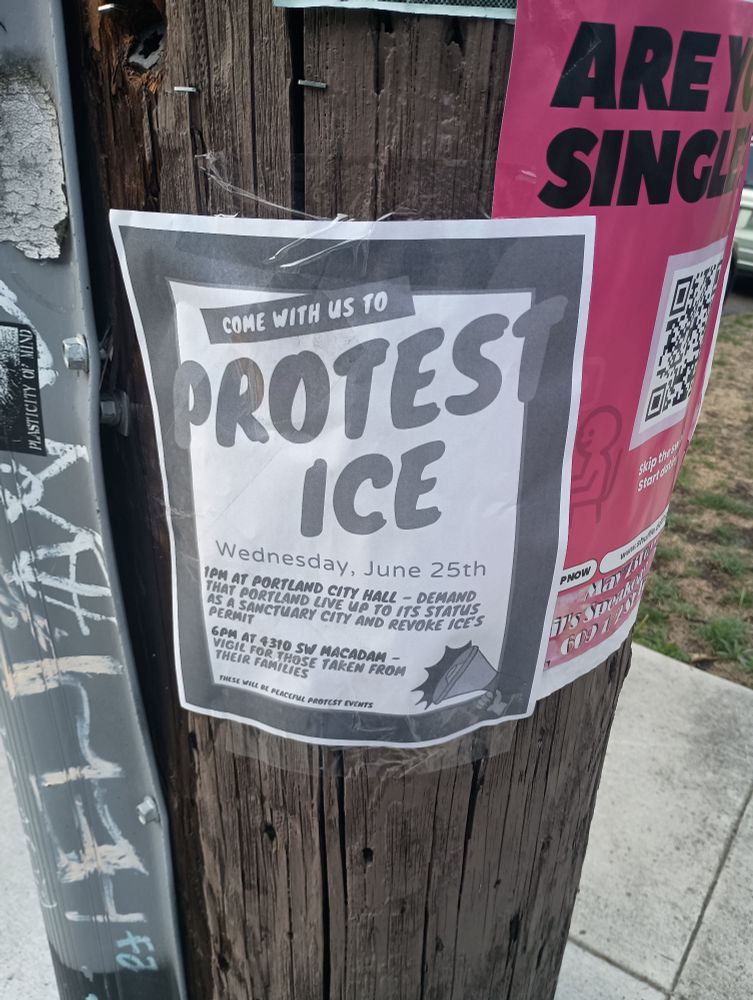 COME WITH US TO
PROTEST
ICE
Wednesday, June 25th
1PM AT PORTLAND CITY HALL – DEMAND
THAT PORTLAND LIVE UP TO ITS STATUS
AS A SANCTUARY CITY AND REVOKE ICE'S
PERMIT
6PM AT 4310 SW MACADAM –
VIGIL FOR THOSE TAKEN FROM
THEIR FAMILIES
THESE WILL BE PEACEFUL PROTEST EVENTS
ARE Y
SINGLE
Skip the
Start
PNOW
www.
May
PLASTICITY OF MIND